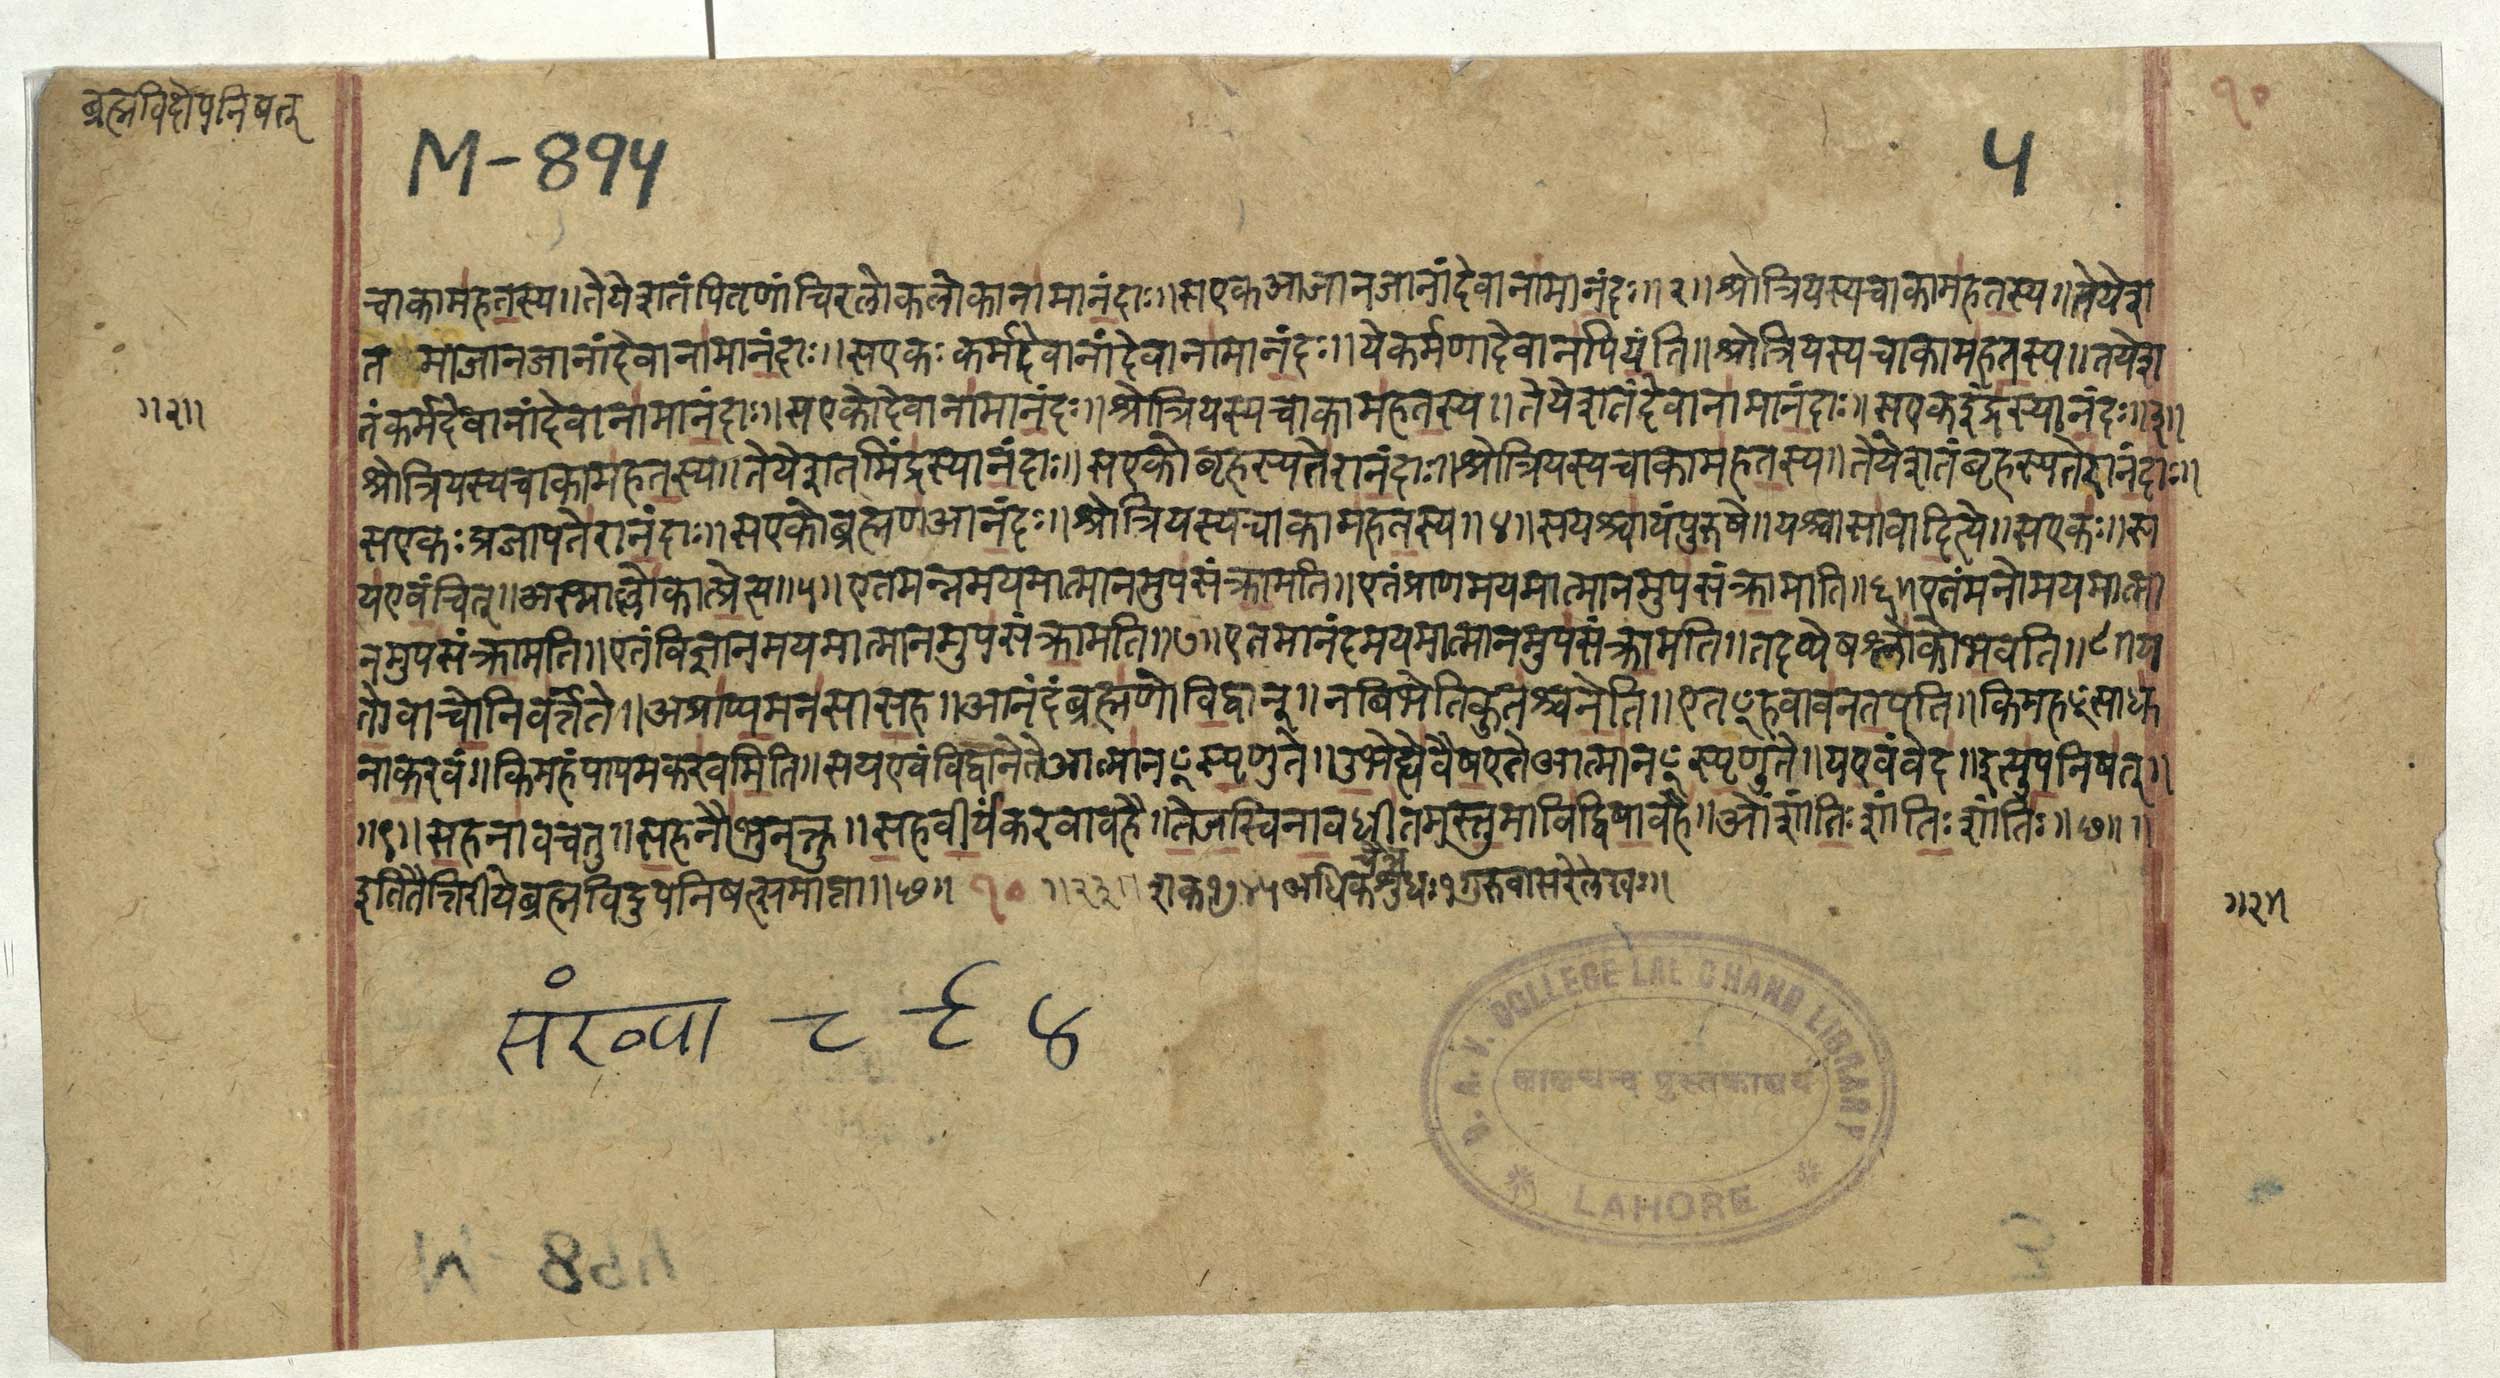 ब्रह्मविदोपनिषत्
१०
M-894
५
चाकामहतस्य॥तेयेशतंपितृणांचिरलोकलोकानामानंदाः॥सएकआजानजानांदेवानामानंदः॥२॥श्रोत्रियस्यचाकामहतस्य॥तेयेश
त माजानजानांदेवानामानंदाः॥सएकःकर्मदेवानांदेवानामानंदः॥येकर्मणादेवानपियंति॥श्रोत्रियस्यचाकामहतस्य॥तेयेश
॥२॥
तंकर्मदेवानांदेवानामानंदाः॥सएकोदेवानामानंदः॥श्रोत्रियस्यचाकामहतस्य॥तेयेशतंदेवानामानंदाः॥सएकइंद्रस्यानंदः॥३॥
श्रोत्रियस्यचाकामहतस्य॥तेयेशतमिंद्रस्यानंदाः॥सएकोबृहस्पतेरानंदाः॥श्रोत्रियस्यचाकामहतस्य॥तेयेशतंबृहस्पतेरानंदाः॥
सएकःप्रजापतेरानंदाः॥सएकोब्रह्मणआनंदः॥श्रोत्रियस्यचाकामहतस्य॥४॥सयश्चायंपुरुषे॥यश्चासावादित्ये॥सएकः॥स
यएवंवित्॥अस्माल्लोकात्प्रेत्य॥५॥एतमन्नमयमात्मानमुपसंक्रामति॥एतंप्राणमयमात्मानमुपसंक्रामाति॥६॥एतंमनोमयमात्मा
नमुपसंक्रामति॥एतंविज्ञानमयमात्मानमुपसंक्रामति॥७॥एतमानंदमयमात्मानमुपसंक्रामति॥तदप्येषश्लोकोभवति॥८॥य
तोवाचोनिवर्त्तते॥अप्राप्यमनसासह॥आनंदंब्रह्मणोविद्वान्॥नबिभेतिकुतश्चनेति॥एतꣳहवावनतपति॥किमहꣳसाधु
नाकरवं॥किमहंपापमकरवमिति॥सयएवंविद्वानेतेआत्मानꣳस्पृणुते॥उभेह्येवैषएतेआत्मानꣳस्पृणुते॥यएवंवेद॥इत्युपनिषत्॥
॥९॥सहनाववतु॥सहनौभुनक्तु॥सहवीर्यंकरवावहै॥तेजस्विनावधीतमस्तुमाविद्विषावहै॥ओंशांतिःशांतिःशांतिः॥छ॥॥
इतितैत्तिरीयेब्रह्मविदुपनिषत्समाप्ता॥छ॥ १० ॥२३॥ शके१७४५अधिकचैत्रशुधः१गुरुवासरेलेखः॥
॥२॥
संख्या ८९४
D. A. V. COLLEGE LAL CHAND LIBRARY
लालचन्द पुस्तकालय
* LAHORE *